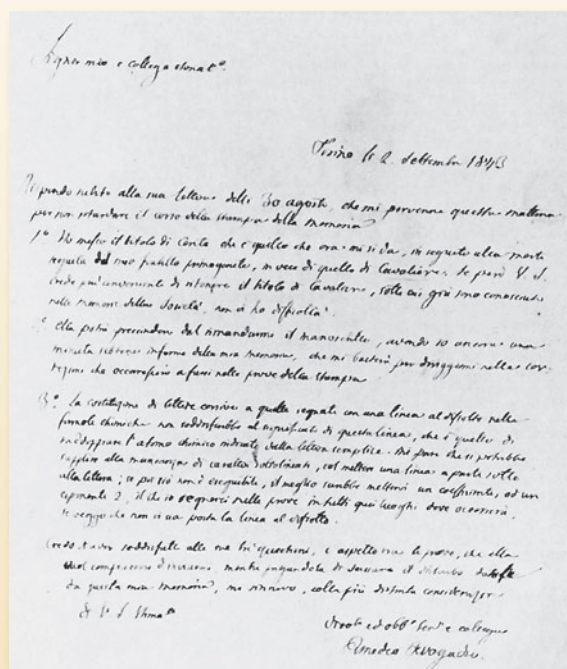 Signor mio e collega stimat.º
Torino li 2. settembre 1843
Rispondo subito alla sua lettera delli 30 agosto, che mi pervenne questa mattina
per non ritardare il corso della stampa della memoria
1º Ho messo il titolo di Conte che è quello che ora mi si da, in seguito alla morte
seguita del mio fratello primogenito, in vece di quello di Cavaliere. Se però V. S.
crede più conveniente di ritenere il titolo di Cavaliere, sotto cui già sono conosciuto
nelle memorie della Società, non ci ho difficoltà.
2º Ella potrà prescindere dal rimandarmi il manoscritto, avendo io ancora una
minuta sebbene informe della mia memoria, che mi basterà per dirigermi nelle cor-
rezioni che occorressero a farsi nelle prove della stampa
3º La sostituzione di lettere corsive a quelle segnate con una linea al disotto nelle
formole chimiche non soddisfarebbe al significato di questa linea, che è quello di
raddoppiare l'atomo chimico indicato dalla lettera semplice. Mi pare che si potrebbe
supplire alla mancanza di caratteri sottolineati, col mettere una linea a parte sotto
alla lettera; se poi ciò non è eseguibile, il meglio sarebbe mettervi un coefficiente, od un
esponente 2, il che io segnerò nelle prove in tutti quei luoghi dove occorrerà,
se veggo che non si sia posta la linea al disotto.
Credo d'aver soddisfatto alle sue tre questioni, e aspetto ora le prove, che ella
mentre pregandola di scusare il disturbo
da questa mia memoria, mi rinnovo, colla più distinta considerazione
di V. S. Stima.ª
Amedeo Avogadro